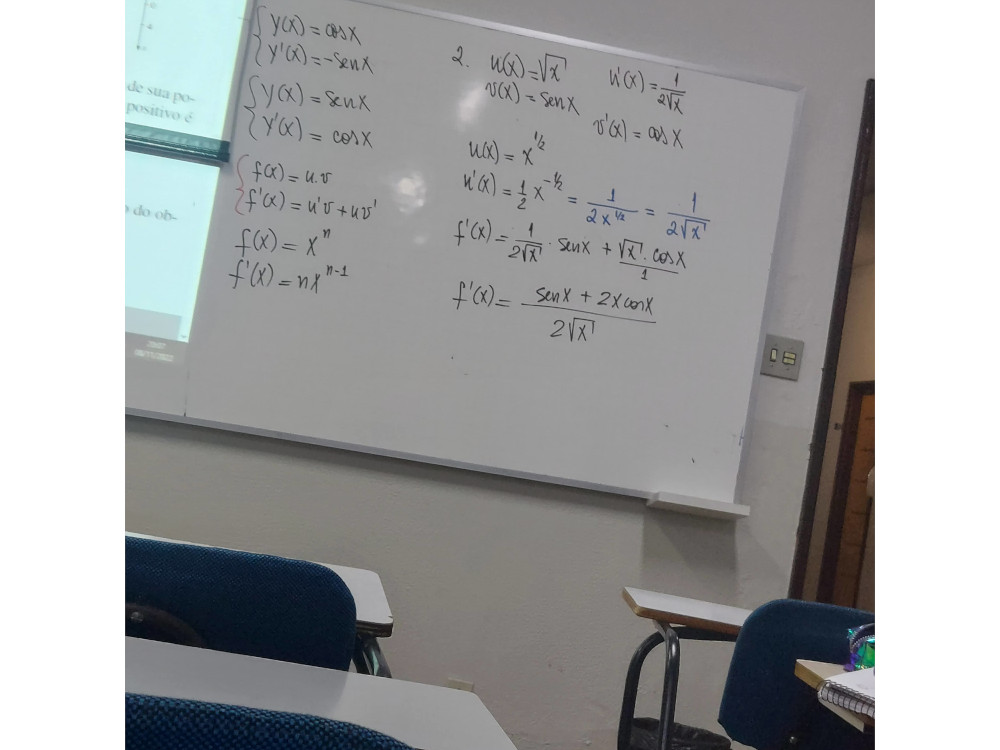 de sua po-
positivo é
do ob-
20:07
08/11/2022
y(x) = cosx
y'(x) = -senx
y(x) = senx
y'(x) = cosx
f(x) = u.v
f'(x) = u'v + uv'
f(x) = x^n
f'(x) = nx^{n-1}
2. u(x) = √x u'(x) = 1/(2√x)
v(x) = senx v'(x) = cosx
u(x) = x^{1/2}
u'(x) = 1/2 x^{-1/2} = 1/(2x^{1/2}) = 1/(2√x)
f'(x) = 1/(2√x) · senx + (√x · cosx)/1
f'(x) = (senx + 2x cosx)/(2√x)